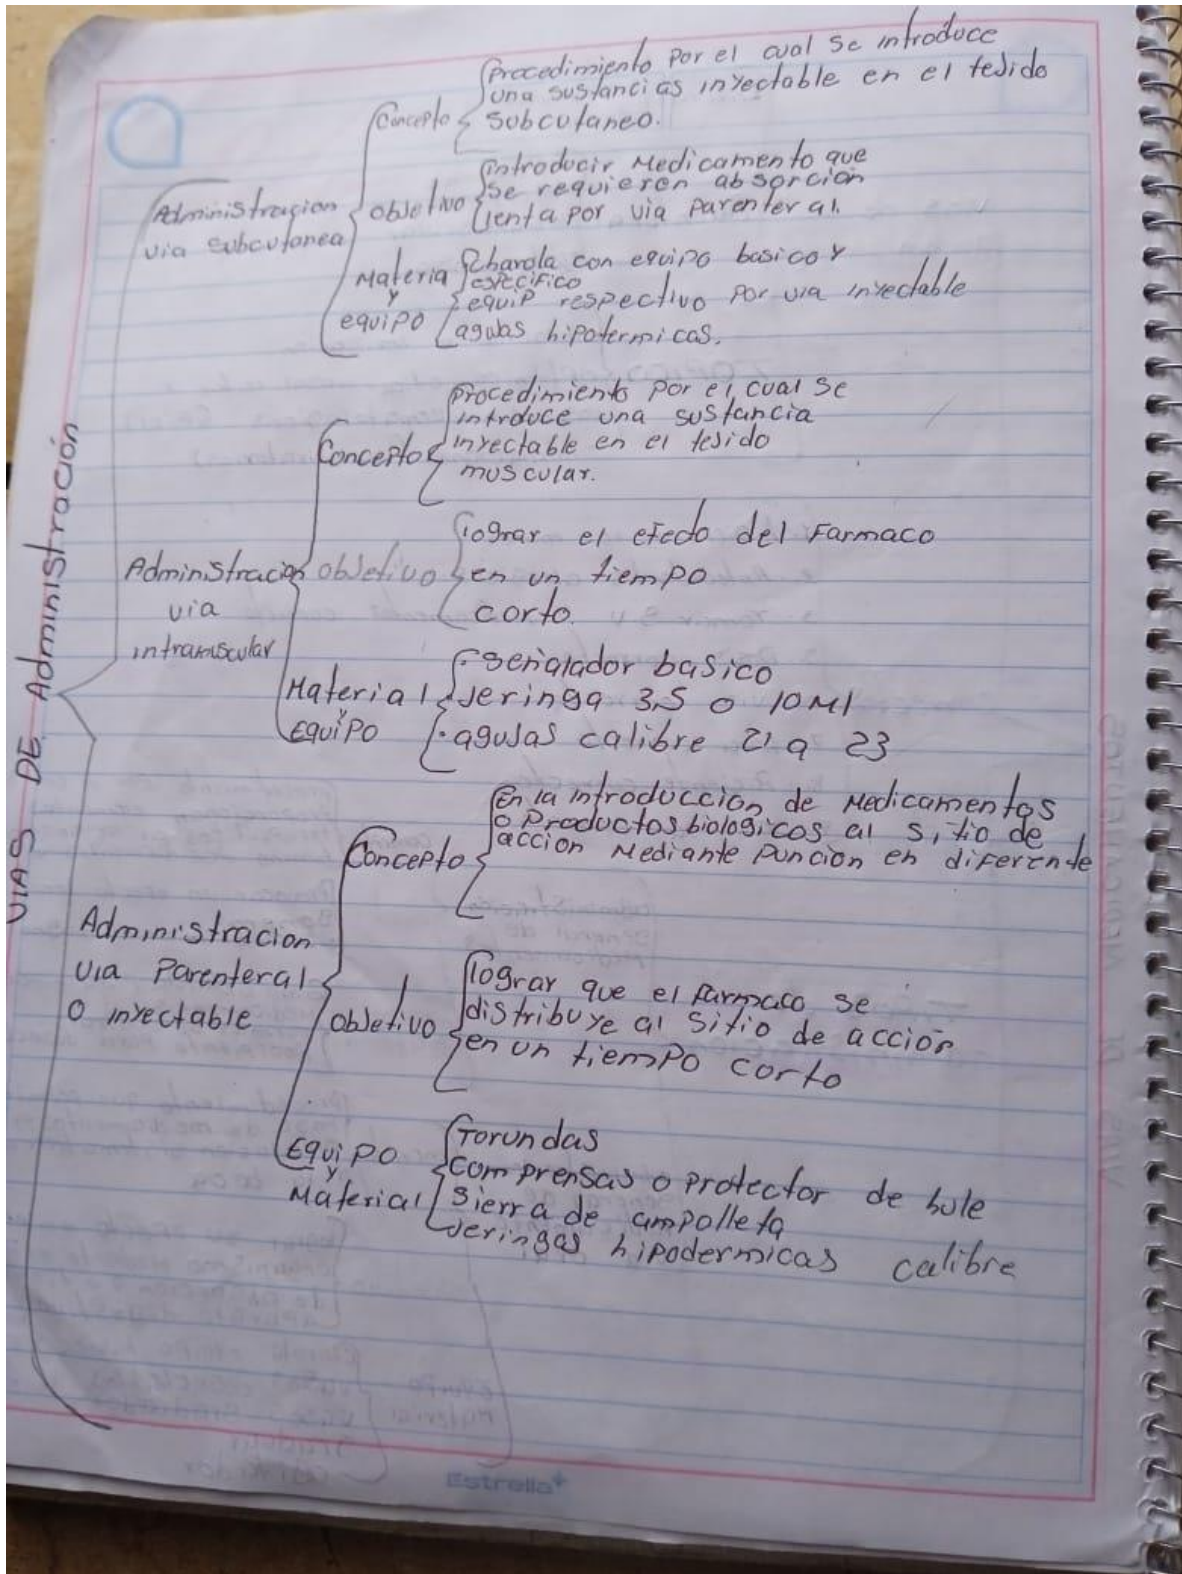 VIAS DE Administración
Administracion
via subcutanea
Concepto
Procedimiento por el cual se introduce
una sustancias inyectable en el tejido
subcutaneo.
objetivo
introducir Medicamento que
se requieren absorcion
lenta por via parenteral.
Materia
y
equipo
Charola con equipo basico y
especifico
equip respectivo por via inyectable
agujas hipotermicas.
Administracion
via
intramuscular
Concepto
Procedimiento por el cual se
introduce una sustancia
inyectable en el tejido
muscular.
objetivo
lograr el efecto del Farmaco
en un tiempo
corto.
Material
y
Equipo
señalador basico
Jeringa 3,5 o 10 Ml
· agujas calibre 21 a 23
Administracion
via Parenteral
O inyectable
Concepto
En la introduccion de Medicamentos
o Productos biologicos al sitio de
accion Mediante Puncion en diferente
objetivo
lograr que el farmaco se
distribuye al sitio de acción
en un tiempo corto
Equipo
y
Material
Torundas
comprensas o protector de hule
Sierra de ampolleta
Jeringas hipodermicas calibre
Estrella